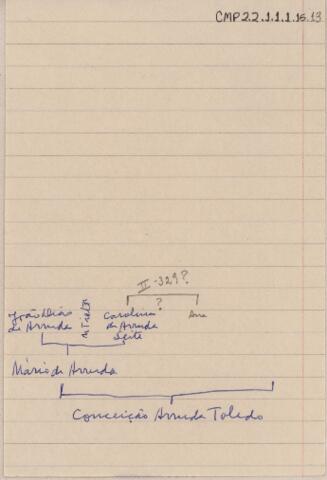 CMP 2.2.1.1.1.15.13
II - 329?
?
João Dias
de Arruda
Carolina
de Arruda
Leite
Ana
Mário de Arruda
Conceição Arruda Toledo